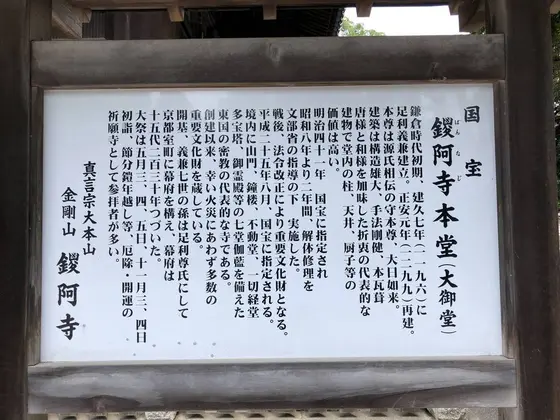 国宝
鑁阿寺本堂(大御堂)
ばんなじ
鎌倉時代初期、建久七年(一一九六)に
足利義兼建立。正安元年(一二九九)再建。
本尊は源氏相伝の守本尊、大日如来。
建築は構造雄大、手法剛健、本瓦葺
唐様と和様を加味した折衷の代表的な
建物で堂内の柱、天井、厨子等の
価値は高い。
明治四十一年、国宝に指定され
昭和八年より二年間、解体修理を
文部省の指導の下、実施した。
戦後、法令改正により重要文化財となる。
平成二十五年八月、国宝に指定される。
境内に山門、鐘楼、不動堂、一切経堂
多宝塔、御霊殿等の七堂伽藍を備えた
東国の密教の代表的な寺である。
創建以来、幸い火災にあわず多数の
重要文化財を蔵している。
開基、義兼七世の孫は足利尊氏にして
京都室町に幕府を構え、幕府は
十五代二百三十年つづいた。
大祭は五月三、四、五日、十一月三、四日
初詣・節分鎧年越し等、厄除・開運の
祈願寺として参拝者が多い。
真言宗大本山
金剛山 鑁阿寺